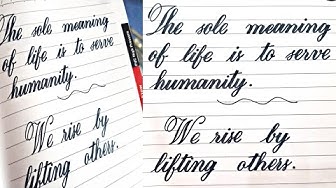 The sole meaning
of life is to serve
humanity.
We rise by
lifting others.
The sole meaning
of life is to serve
humanity.
We rise by
lifting others.